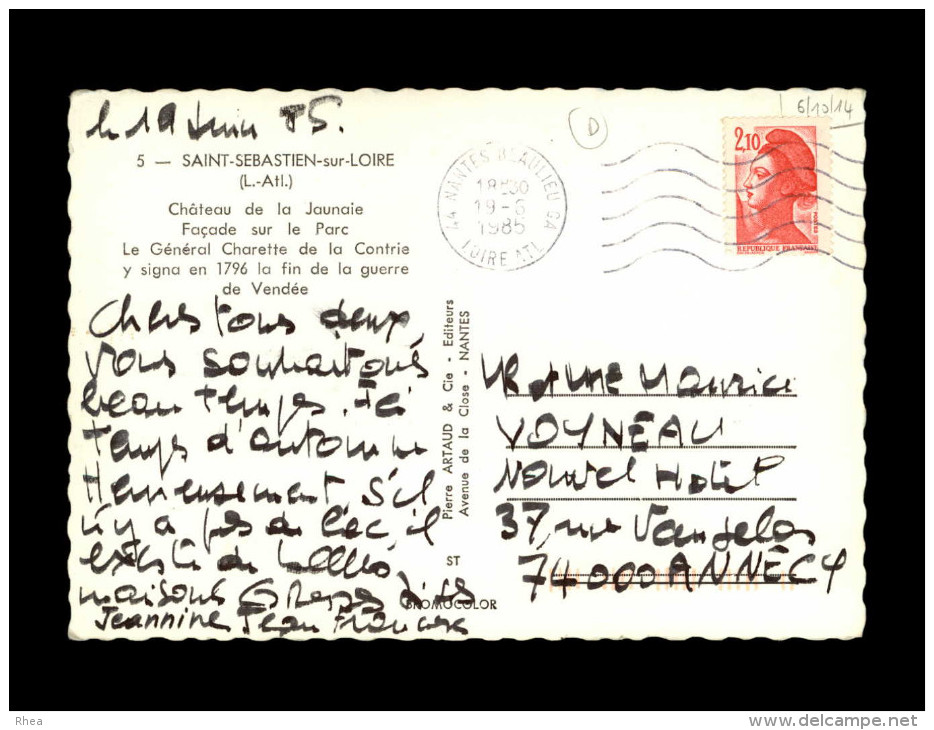 le 19 Juin 85.
5 — SAINT-SEBASTIEN-sur-LOIRE
(L.-Atl.)
Château de la Jaunaie
Façade sur le Parc
Le Général Charette de la Contrie
y signa en 1796 la fin de la guerre
de Vendée
Chers tous deux,
vous souhaitons
beau temps. Ici
Temps d'automne
Heureusement s'il
n'y a pas de lac, il
existe de belles
maisons Grosses bises
Jeannine Jean François
Pierre ARTAUD & Cie - Editeurs
Avenue de la Close - NANTES
ST
BROMOCOLOR
D
6/10/14
44 NANTES BEAULIEU GA
18H30
19-6
1985
LOIRE ATL
2,10
POSTES
REPUBLIQUE FRANÇAISE
Maurice
VOYNEAU
Nouvel Hotel
37, rue Vaugelas
74000 ANNECY
Rhea
www.delcampe.net